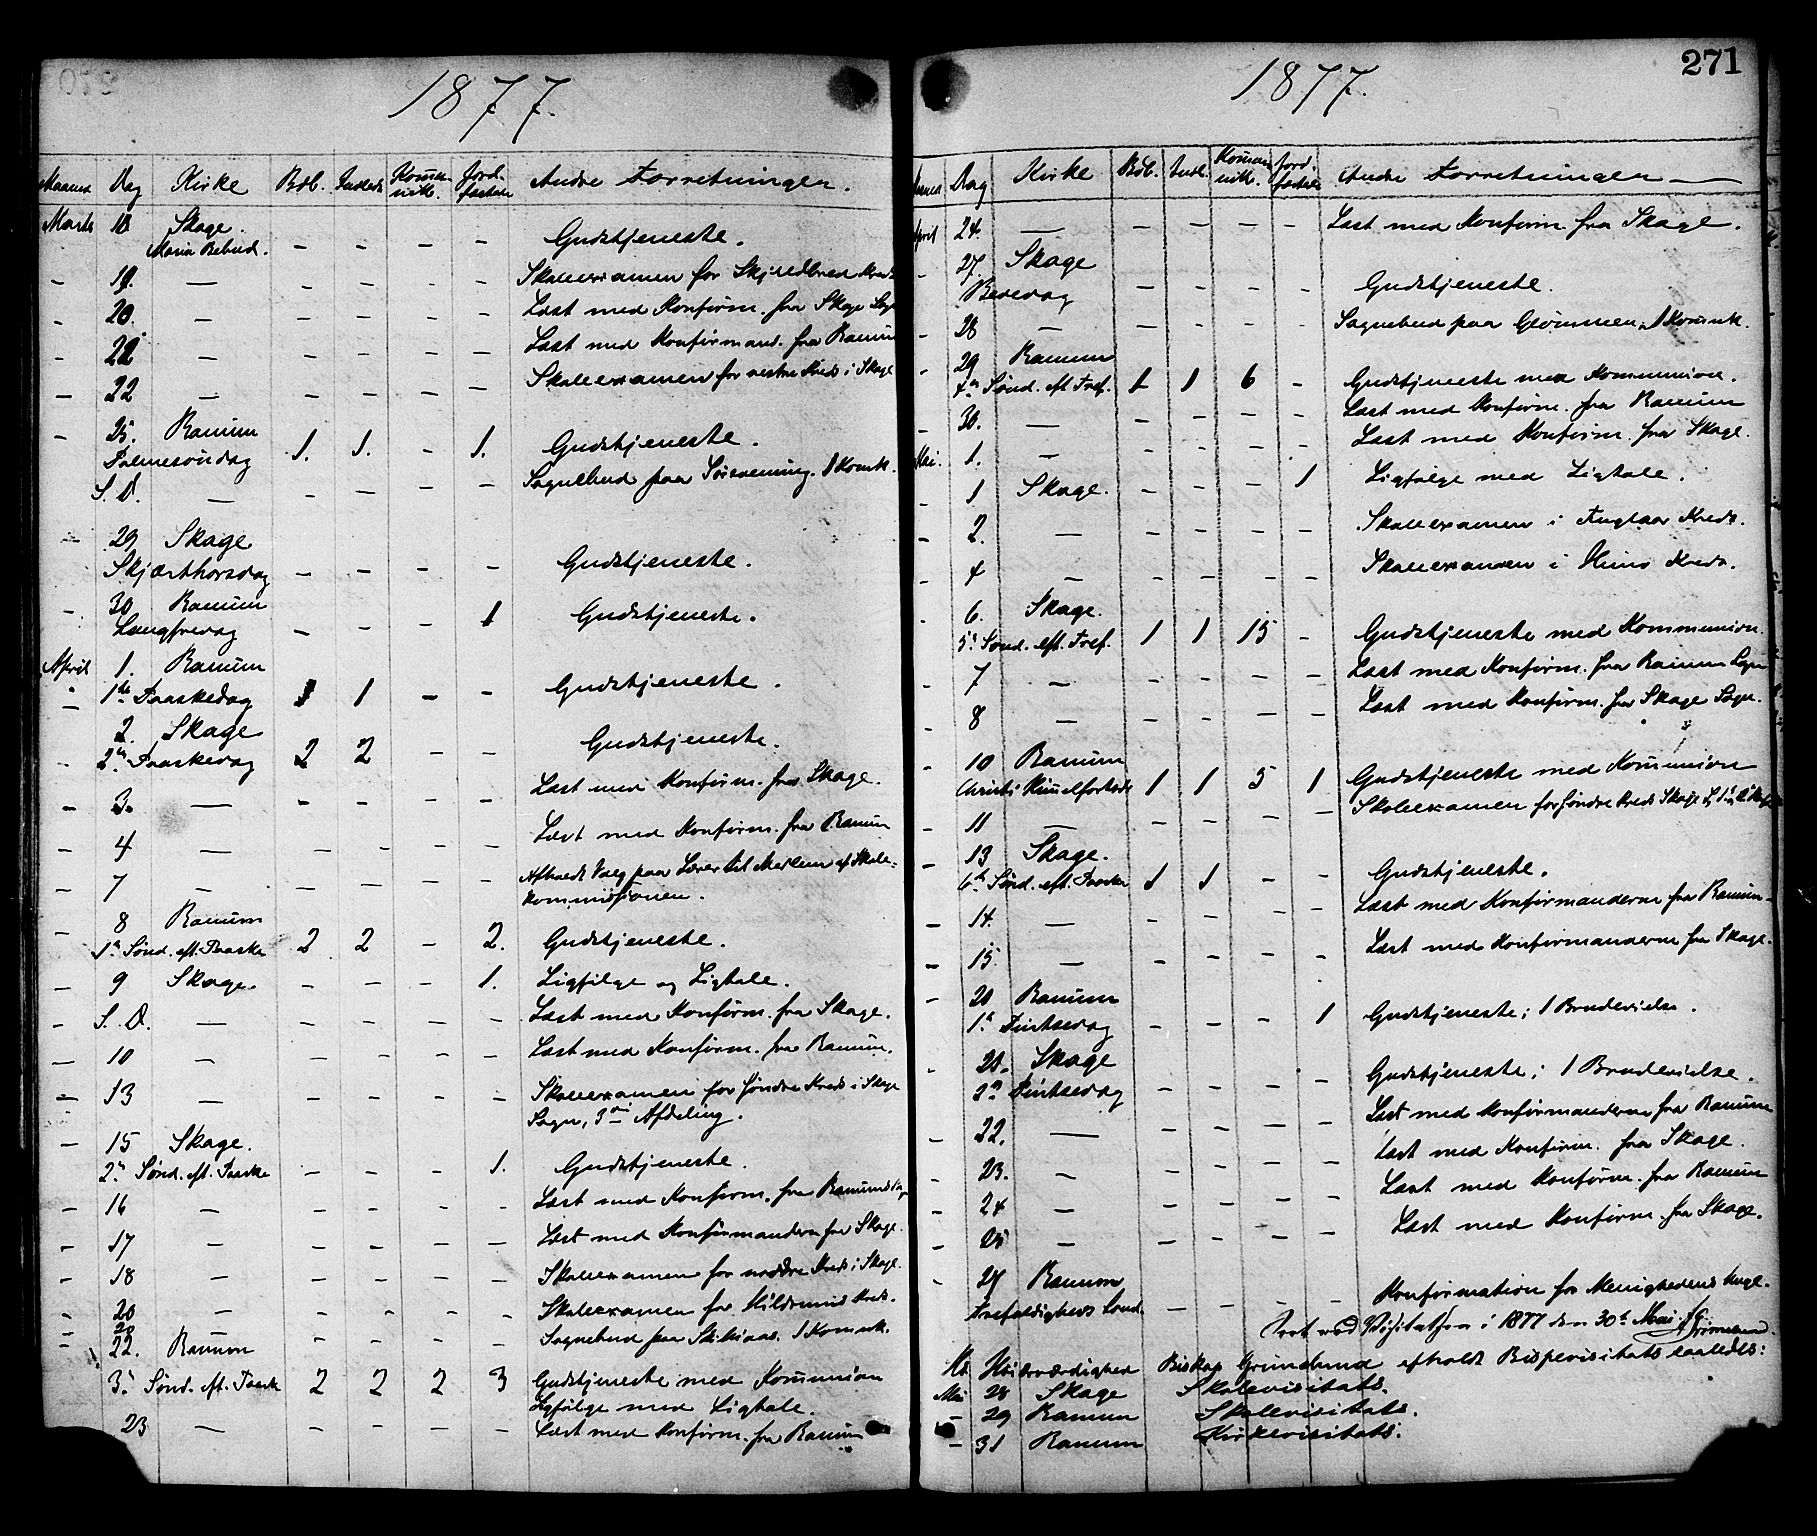 1877.
Maaned Dag Kirke Bdb. Introd. Kommunik. Jordfæstede Andre Forretninger.
Marts 18 Skage.
Maria Bebud. - - - - Gudstjeneste.
- 19. - - - - - Skoleexamen for Kreds
- 20. - - - - - Læst med Konfirm. fra Skage Sogn
- 21 - - - - - Læst med Konfirmand. fra Ranum
- 22 - - - - - Skoleexamen for vestre Kreds i Skage
- 25. Ranum
Palmesöndag 1. 1. - 1. Gudstjeneste.
S. D. - - - - - Sognebud paa 1 Komk.
- 29. Skage
Skjærthorsdag - - - - Gudstjeneste.
- 30 Ranum
Langfredag - - - 1 Gudstjeneste.
April 1. Ranum
- 1ste Paaskedag 1 1 - - Gudstjeneste.
- 2. Skage
- 2den Paaskedag 2 2 - - Gudstjeneste.
- 3. - - - - - Læst med Konfirm. fra Skage.
- 4 - - - - - Læst med Konfirm. fra Ranum
- 7 - - - - - Afholdt Valg paa Lærer til Medlem af Skole-
kommissionen.
- 8 Ranum
1ste Sönd. eft. Paaske 2 2 - 2. Gudstjeneste.
- 9 Skage. - - - 1. Ligfölge og Ligtale.
- S. D. - - - - - Læst med Konfirm. fra Skage.
- 10 - - - - - Læst med Konfirm. fra Ranum.
- 13 - - - - - Skoleexamen for söndre Kreds i Skage
Sogn, 3die Afdeling.
- 15 Skage.
2den Sönd. eft. Paaske - - - 1. Gudstjeneste.
- 16 - - - - - Læst med Konfirm. fra Ranum
- 17 - - - - - Læst med Konfirmanderne fra Skage.
- 18 - - - - - Skoleexamen for nordre Kreds i Skage.
- 20 - - - - - Skoleexamen for Kreds.
- 20 - - - - Sognebud paa 1 Komk.
- 22. Ranum
3die Sönd. eft. Paaske 2 2 2 3 Gudstjeneste med Kommunion
Ligfölge med Ligtale.
- 23 - - - - - Læst med Konfirm. fra Ranum
1877. 271
Maaned Dag Kirke Bdb. Intr. Kommunik. Jordfæstede Andre Forretninger
April 24. - - - - - Læst med Konfirm. fra Skage.
- 27. Skage
Bededag - - - - Gudstjeneste.
- 28 - - - - - Sognebud paa 1 Komk.
- 29 Ranum
4de Sönd. eft. 1 1 6 - Gudstjeneste med Kommunion.
- 30. - - - - - Læst med Konfirm. fra Ranum
Mai. 1. - - - - - Læst med Konfirm. fra Skage.
- 1 Skage. - - - 1 Ligfölge med Ligtale.
- 2. - - - - - Skoleexamen i Kreds.
- 4 - - - - - Skoleexamen i Kreds.
- 6. Skage.
5te Sönd. eft. 1 1 15 - Gudstjeneste med Kommunion.
- 7 - - - - - Læst med Konfirm. fra Ranum Sogn
- 8 - - - - - Læst med Konfirm. fra Skage Sogn.
- 10 Ranum
Christi Himmelfartsdag 1 1 5 1 Gudstjeneste med Kommunion
- 11 - - - - - Skoleexamen for söndre Kreds Skage
- 13 Skage.
6te Sönd. eft. Paaske 1 1 - - Gudstjeneste.
- 14. - - - - - Læst med Konfirmanderne fra Ranum.
- 15. - - - - - Læst med Konfirmanderne fra Skage.
- 20 Ranum
1ste Pintsedag - - - 1 Gudstjeneste; 1 Brudevielse.
- 21. Skage
2den Pintsedag - - - - Gudstjeneste; 1 Brudevielse.
- 22. - - - - - Læst med Konfirmanderne fra Ranum
- 23. - - - - - Læst med Konfirm. fra Skage.
- 24 - - - - - Læst med Konfirm. fra Ranum
- 25 - - - - - Læst med Konfirm. fra Skage.
- 27 Ranum
Trefoldigheds Sönd. - - - - Konfirmation for Menighedens
ved Visitatsen i 1877 den 30te Mai
Hs. Höiærværdighed Biskop Grimelund afholdt Bispevisitats saaledes:
Mai 28 Skage Skolevisitats.
- 29 Ranum Skolevisitats.
- 31 Ranum Kirkevisitats.